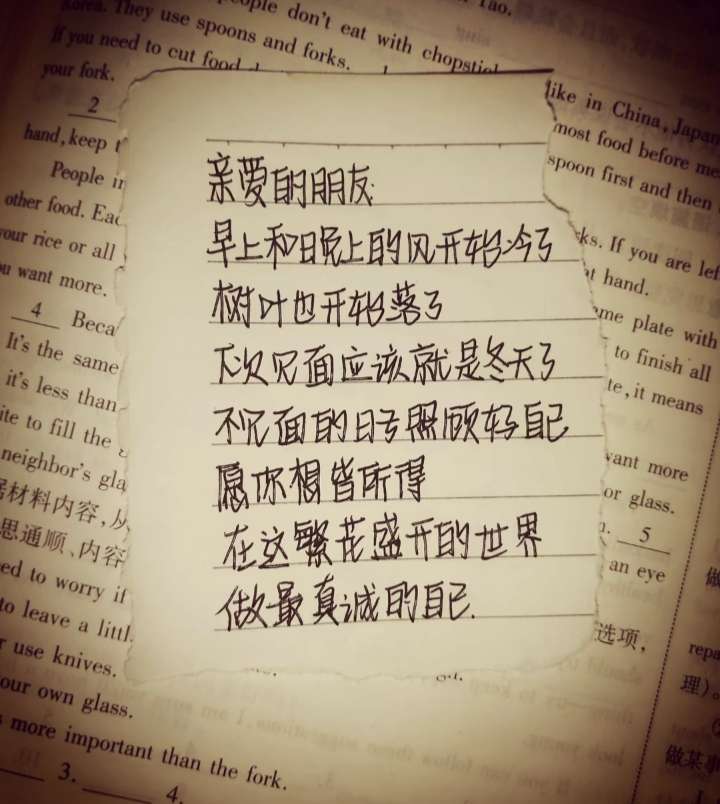 Korea. They use spoons and forks.
people don't eat with
Tao.
If you need to cut food
your fork.
2
hand, keep
People in
other food.
your rice or all
want more.
4 Beca
It's the same
it's less than
to fill the
neighbor's
材料内容,从
思通顺、内容
to worry if
to leave a
use knives.
our own glass.
more important than the fork.
3.
4.
like in China, Japan
most food before
spoon first and then
If you are left
hand.
plate with
to finish all
it means
want more
or glass.
5
an eye
选项,
理)
做某事
亲爱的朋友
早上和晚上的风开始冷了
树叶也开始落了
下次见面应该就是冬天了
不见面的日子照顾好自己
愿你想皆所得
在这繁花盛开的世界
做最真诚的自己.